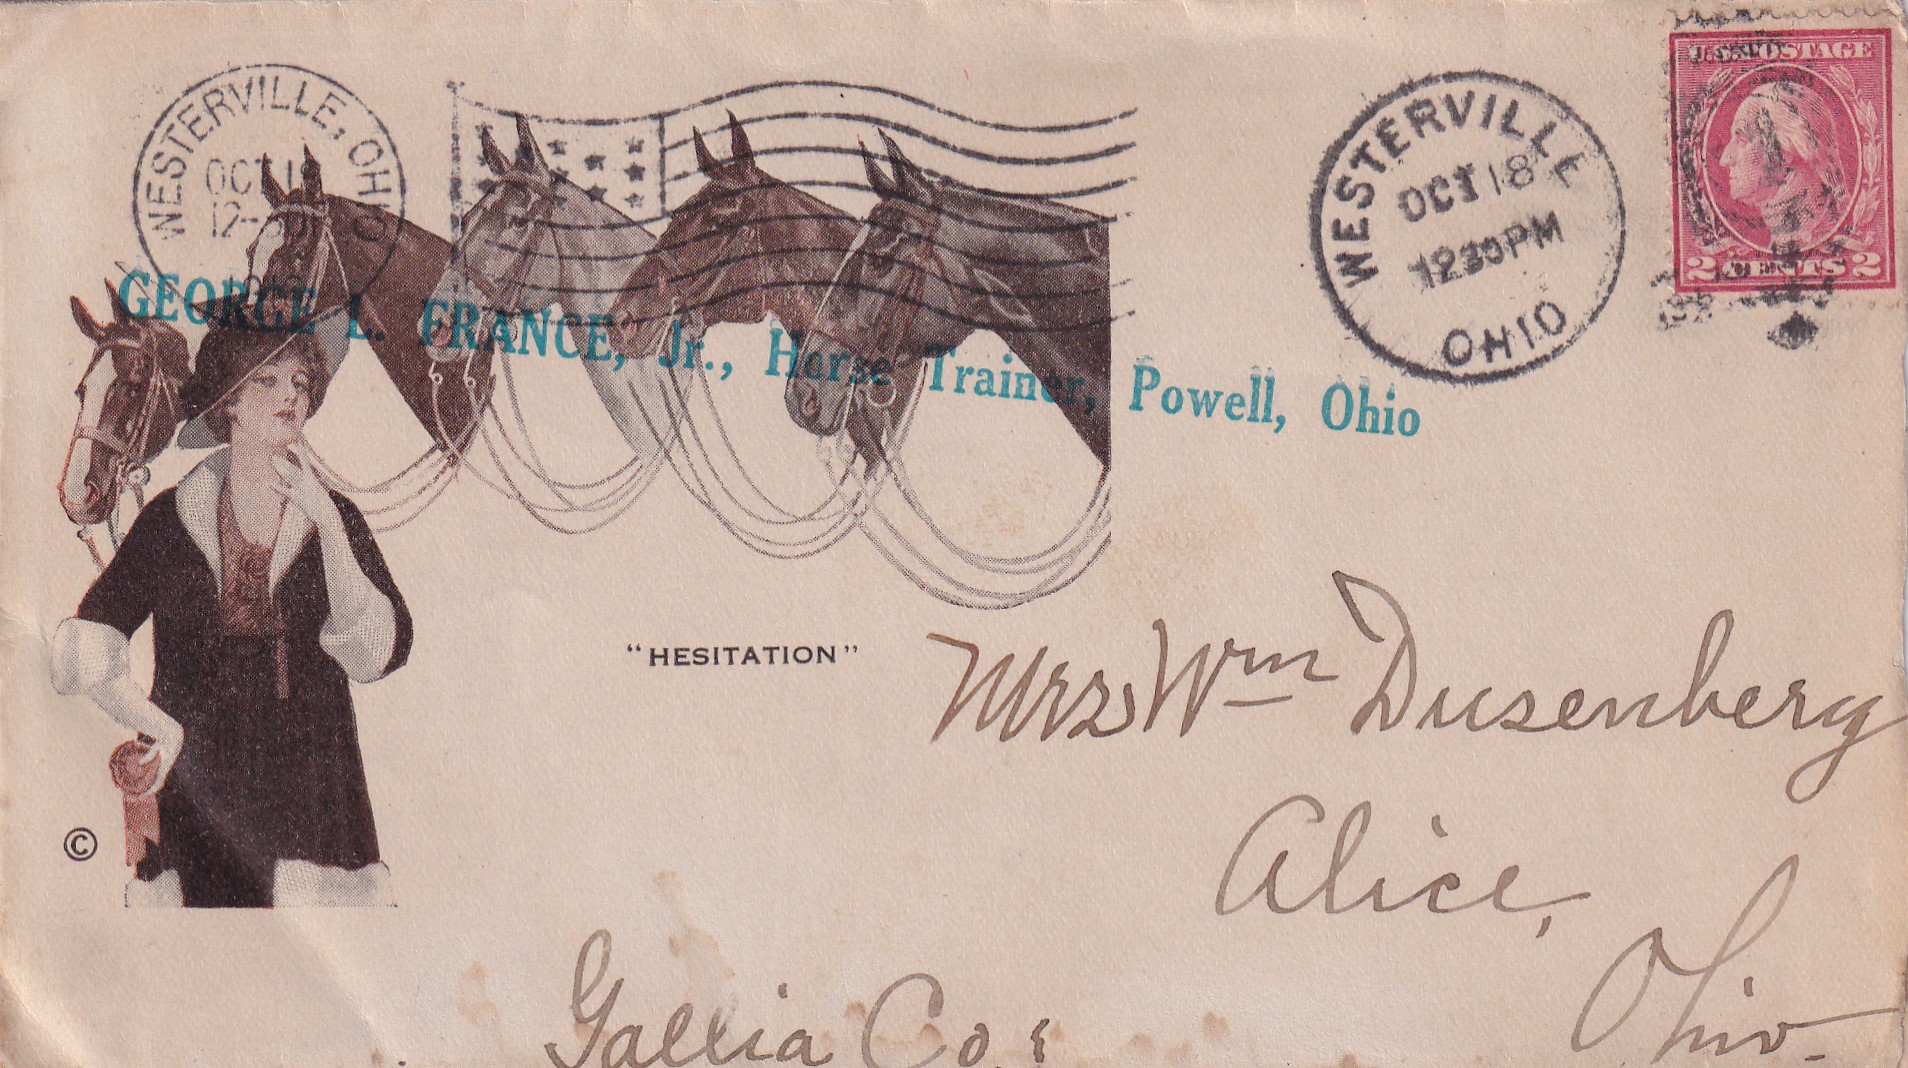 WESTERVILLE, OHIO
OCT 1
12-30
GEORGE L. FRANCE, Jr., Horse Trainer, Powell, Ohio
WESTERVILLE
OCT 18
1230PM
OHIO
U.S. POSTAGE
2 CENTS 2
"HESITATION"
©
Mrs Wm Dusenbery
Alice,
Ohio
Gallia Co.